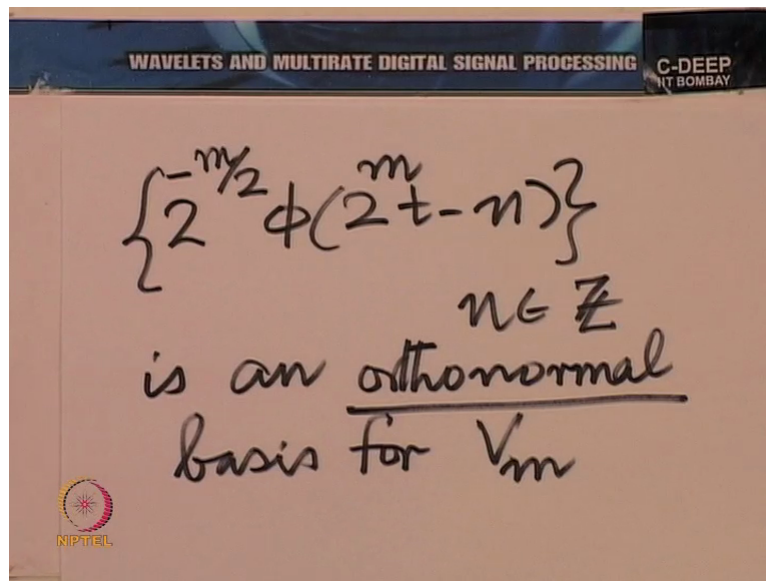 WAVELETS AND MULTIRATE DIGITAL SIGNAL PROCESSING
C-DEEP
IIT BOMBAY
{2^{-m/2} φ(2^m t - n)}
n ∈ ℤ
is an orthonormal
basis for V_m
NPTEL